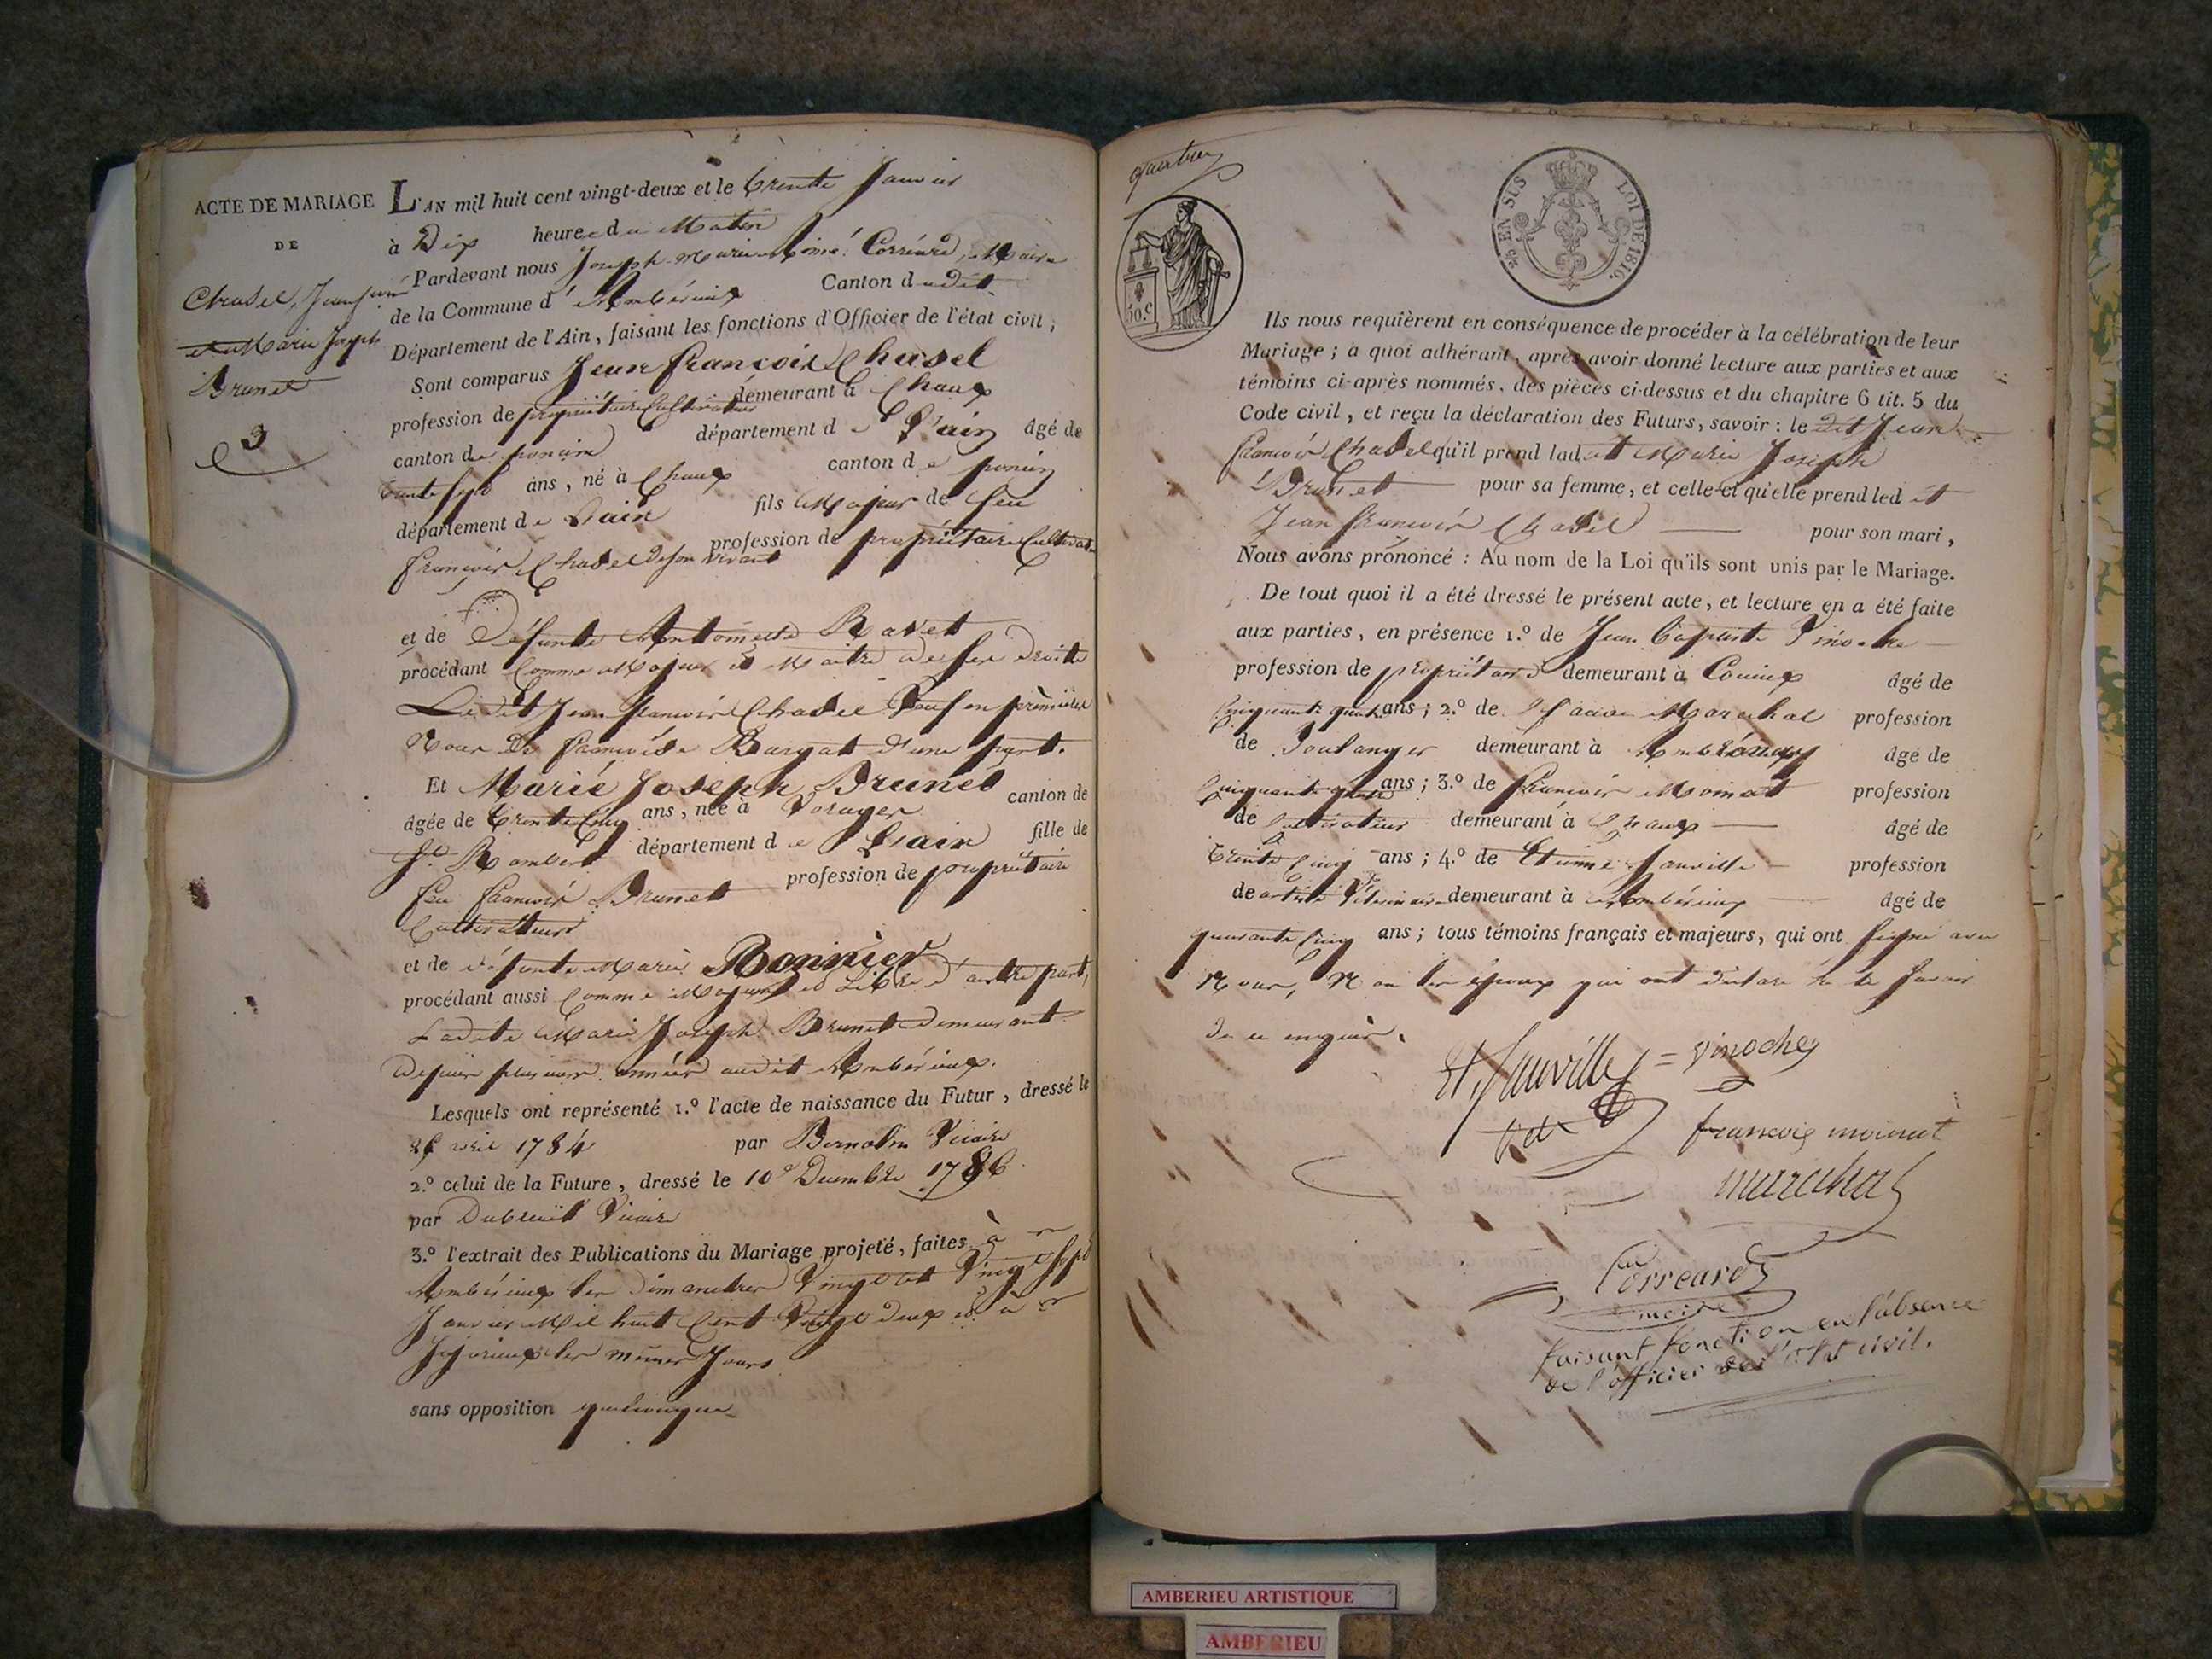 ACTE DE MARIAGE
DE
Chasel, Jean
et Marie Joseph
Brunet
3
L'AN mil huit cent vingt-deux et le trente Janvier
à Dix heure du Matin
Pardevant nous Joseph Marie Aimé Corréard, Maire
de la Commune d'Ambérieux Canton dudit
Département de l'Ain, faisant les fonctions d'Officier de l'état civil;
Sont comparus Jean françois Chasel
profession de propriétaire Cultivateur demeurant à Chaux
canton de poncin département de l'ain âgé de
trente sept ans, né à Chaux canton de poncin
département de L'ain fils Majeur de feu
françois Chasel de son vivant profession de propriétaire Cultivateur
et de Défunte Antoinette Ravet
procédant Comme Majeur et Maitre de ses droits
Ledit Jean françois Chasel Veuf en premières
Noces de françoise Bargat d'une part.
Et Marie Joseph Brunet
âgée de trente cinq ans, née à Torages canton de
St. Rambert département de L'ain fille de
feu françois Brunet profession de propriétaire
Cultivateur
et de défunte Marie Bonnier
procédant aussi Comme Majeure et Libre d'autre part,
Ladite Marie Joseph Brunet demeurant
depuis plusieurs années audit Ambérieux.
Lesquels ont représenté 1.º l'acte de naissance du Futur, dressé le
avril 1784 par Vicaire
2.º celui de la Future, dressé le 10 Decembre 1786
par Dubreuil Vicaire
3.º l'extrait des Publications du Mariage projeté, faites à
Ambérieux les dimanches Vingt et Vingt sept
Janvier Mil huit Cent Vingt deux et à
Jujurieux les mêmes Jours
sans opposition quelconque
quatre
50.C
EN SUS
LOI DE 1816.
Ils nous requièrent en conséquence de procéder à la célébration de leur
Mariage; à quoi adhérant, après avoir donné lecture aux parties et aux
témoins ci-après nommés, des pièces ci-dessus et du chapitre 6 tit. 5 du
Code civil, et reçu la déclaration des Futurs, savoir: le dit Jean
françois Chasel qu'il prend ladit Marie Joseph
Brunet pour sa femme, et celle-ci qu'elle prend ledit
Jean françois Chasel pour son mari,
Nous avons prononcé: Au nom de la Loi qu'ils sont unis par le Mariage.
De tout quoi il a été dressé le présent acte, et lecture en a été faite
aux parties, en présence 1.º de Jean Baptiste Vinoche
profession de propriétaire demeurant à âgé de
Cinquante quatre ans; 2.º de Marechal profession
de Boulanger demeurant à Ambronay âgé de
Cinquante ans; 3.º de françois Moinat profession
de Cultivateur demeurant à Chaux âgé de
trente Cinq ans; 4.º de Etienne Janville profession
de artiste Vétérinaire demeurant à Ambérieux âgé de
quarante Cinq ans; tous témoins français et majeurs, qui ont signé avec
Nous, Non les époux qui ont déclaré ne le savoir
de ce enquis.
Et Janville = vinoche
françois moinat
marechal
Corréard
maire
faisant fonction en l'absence
de l'officier de l'état civil.
AMBERIEU ARTISTIQUE
AMBERIEU